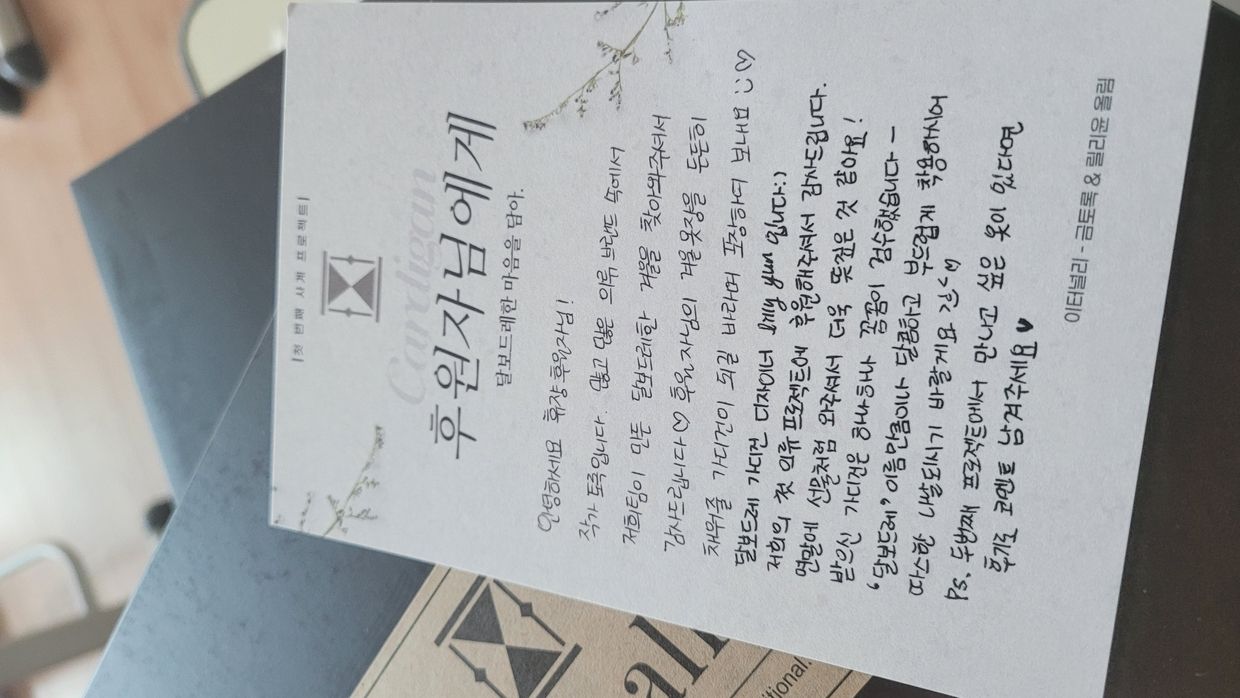 |첫 번째 사계 프로젝트|
Cardigan
후원자님에게
달보드레한 마음을 담아.
안녕하세요 후쟝후원자님!
작가 도록입니다. 많고 많은 의류 브랜드 속에서
저희팀이 만든 달보드레한 겨울을 찾아와주셔서
감사드립니다♡ 후원자님의 겨울옷장을 든든히
채워줄 가디건이 되길 바라며 포항에서 보내요 :)♡
달보드레 가디건 디자이너 yun 입니다:)
저희의 첫 의류 프로젝트에 후원해주셔서 감사드립니다.
펌에 선물처럼 와주셔서 더욱 뜻깊은 것 같아요!
받으신 가디건은 하나하나 꼼꼼히 검수했습니다-
'달보드레' 이름처럼 기분좋고 달콤하고 부드럽게 착용하셔서
따수한 겨울보내시기 바랄게요 ^^
ps. 두번째 프로젝트에서 만나고 싶은 옷이 있다면
후기로 살짝 남겨주세요
이터널리 - 곰도록 & 릴리윤 올림
all
itional.